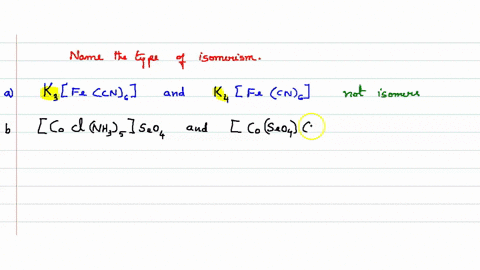 Name the type of isomerism.
a) K₃[Fe(CN)₆] and K₄[Fe(CN)₆] not isomers
b [Co Cl(NH₃)₅]SeO₄ and [Co(SeO₄)(